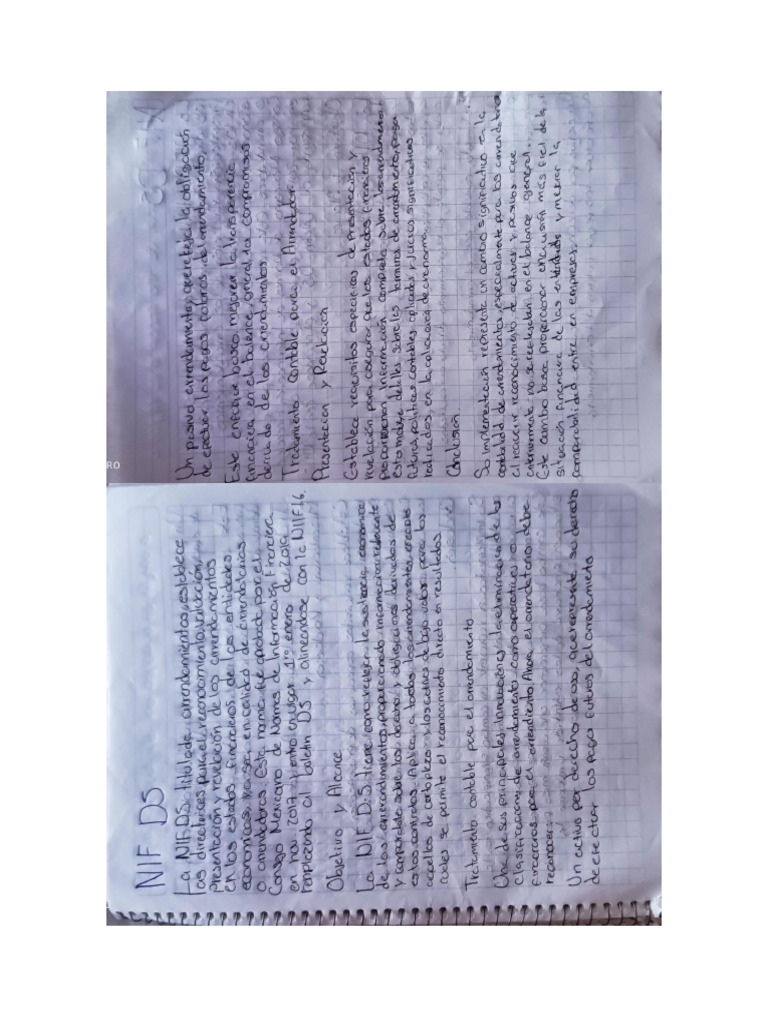 NIF D5
La NIF D5, titulada arrendamientos, establece
las directrices para el reconocimiento, valuación,
presentación y revelación de los arrendamientos
en los estados financieros de las entidades
economicas, ya sea en calidad de arrendatarios
o arrendadoras. Esta norma fue aprobada por el
Consejo Mexicano de Normas de Información Financiera
en nov 2017 y entro en vigor 1ro enero de 2019
remplazando al boletin D5 y alineandose con la NIIF16.
Objetivo y Alcance
La NIF D-5 tiene como reflejar la sustancia económica
de los arrendamientos, proporcionando información relevante
y comparable sobre los derechos y obligaciones derivados de
estos contratos. Aplica a todos los arrendamientos, excepto
aquellos de corto plazo y los activos de bajo valor, para los
cuales se permite el reconocimiento directo en resultados
Tratamiento contable por el arrendamiento
Una de sus principales innovaciones la eliminación de la
clasificación de arrendamiento como operativos o
financieros para el arrendatario. Ahora el arrendatario debe
reconocer:
Un activo por derecho de uso, que represente su derecho
de efectuar los pagos futuros del arrendamiento
Un pasivo arrendamiento, que refleja la obligación
de efectuar los pagos futuros del arrendamiento.
Este enfoque busca mejorar la transparencia
financiera en el balance general los compromisos
derivado de los arrendamientos.
Tratamiento contable para el Arrendador.
Presentación y Revelación
Establece requisitos especificos de presentación y
revelación para asegurar que los estados financieros
proporcionen información completa sobre los arrendamientos
esto incluye detalles sobre los terminos de arrendamiento, pagos
futuros, políticas contables aplicadas y juicios significativos
realizados en la aplicación de la norma.
Conclusión
Su implementación representa un cambio significativo en la
contabilidad de arrendamientos, especialmente para los arrendatarios
al requerir reconocimiento de activos y pasivos que
anteriormente no se reflejaban en el balance general.
Este cambio busca proporcionar una visión más fiel de la
situación financiera de las entidades y mejorar la
comparabilidad entre en empresas.